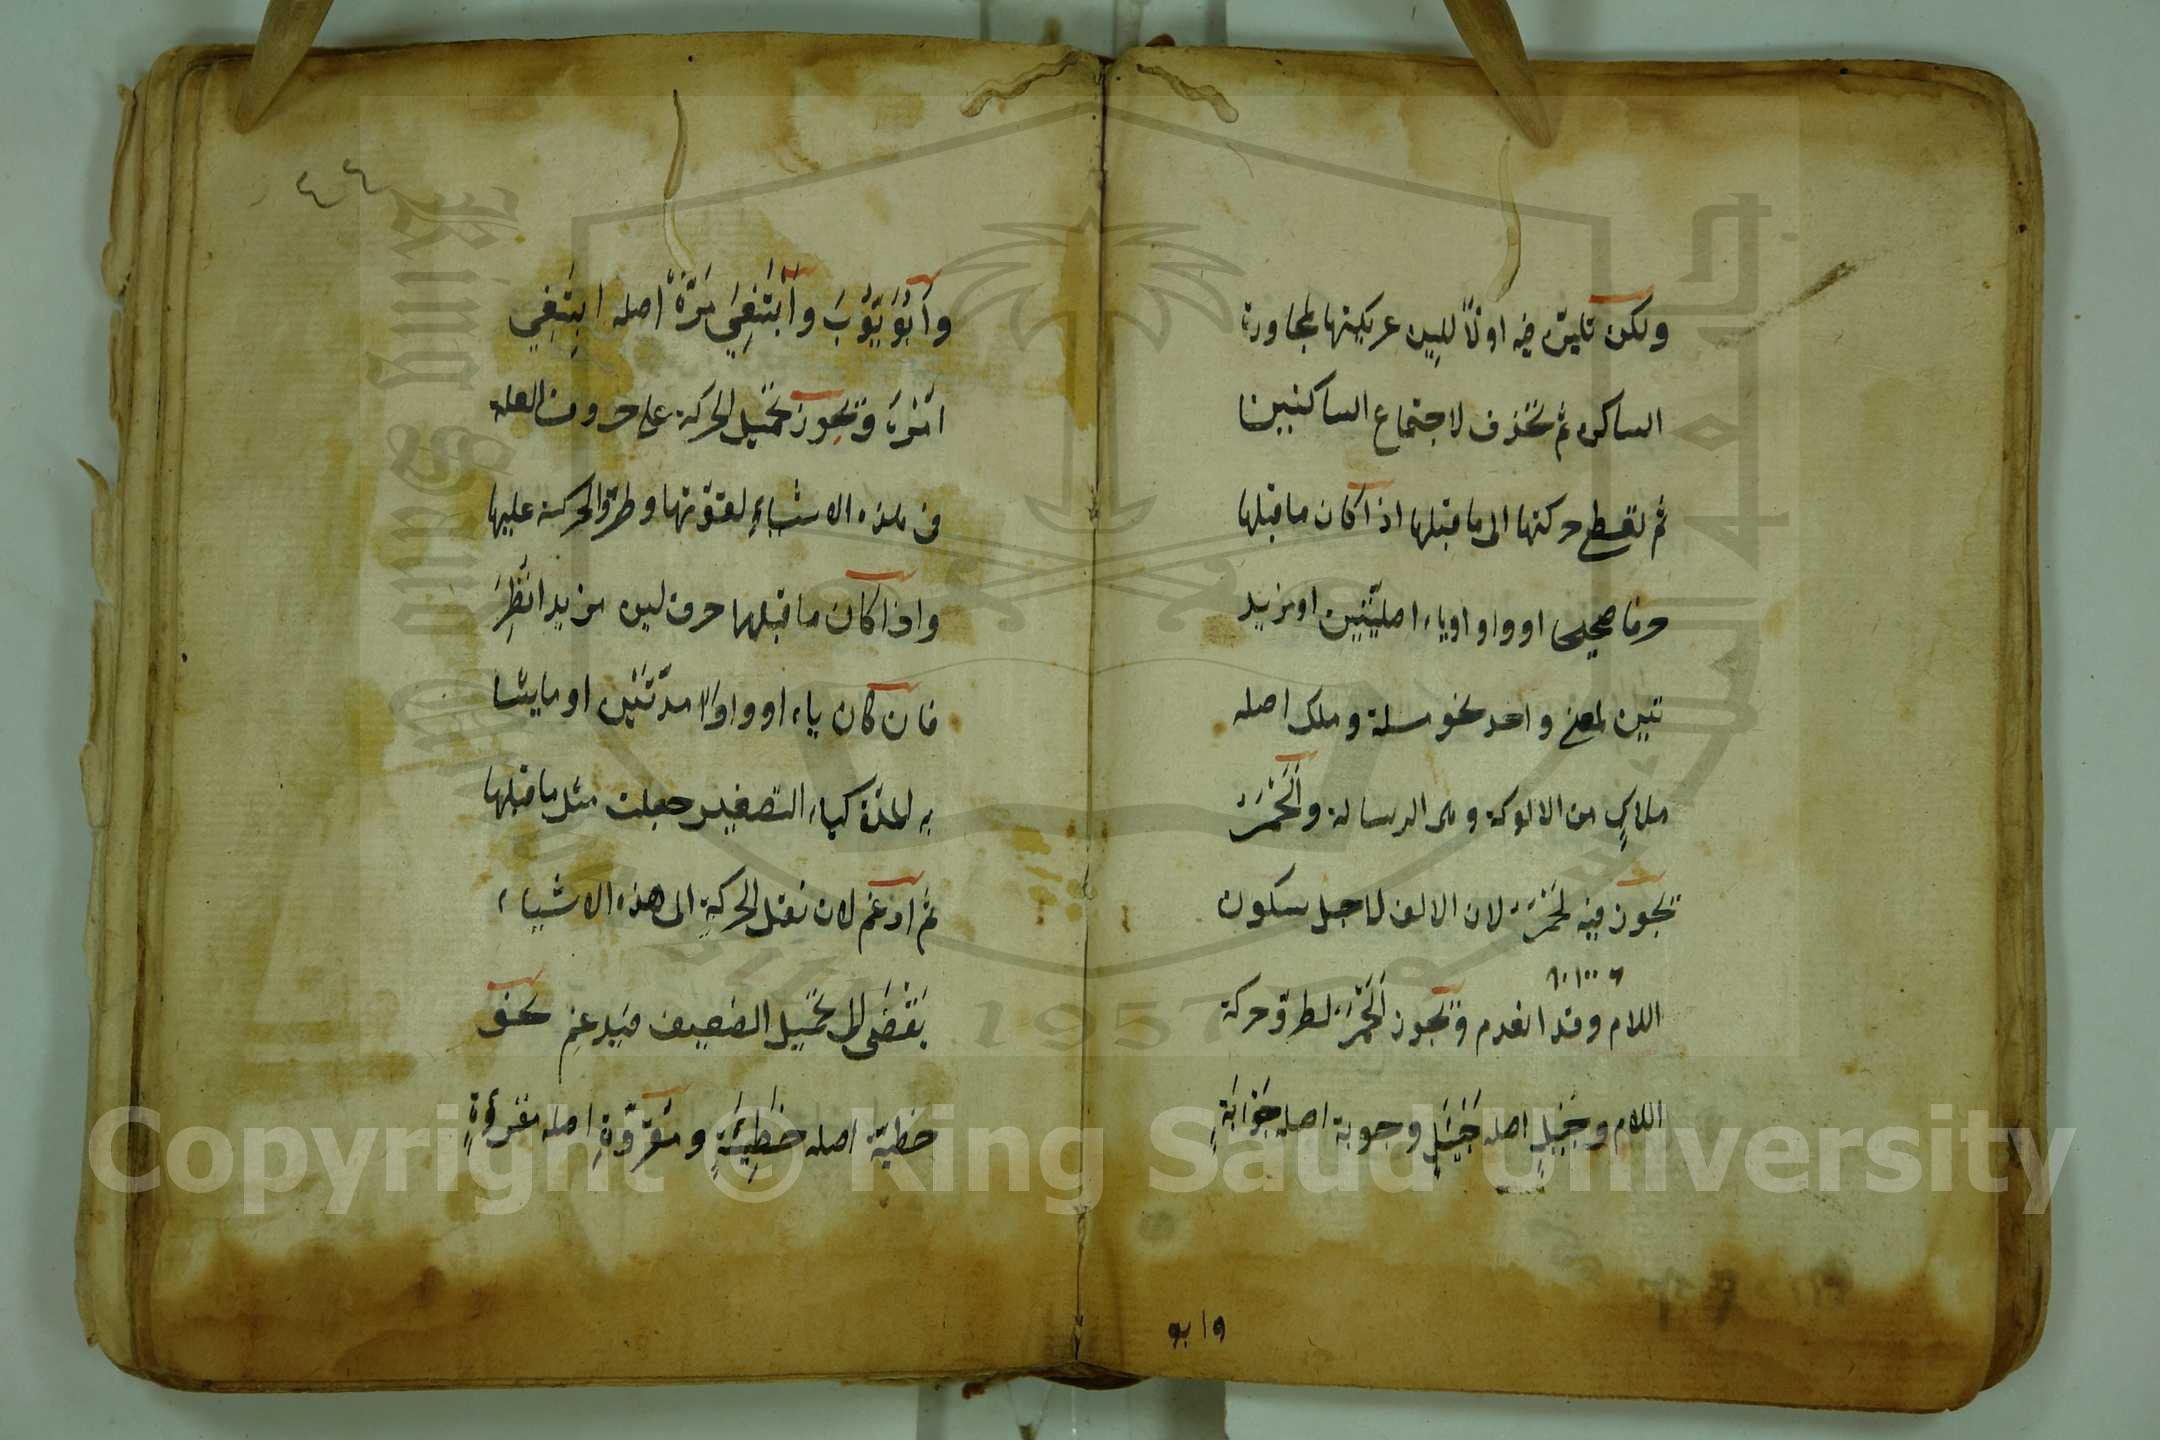 ولكن تليّن فيه اولًا للين عريكتها لمجاورة
الساكن ثم تحذف لاجتماع الساكنين
ثم تعطى حركتها الى ما قبلها اذا كان ما قبلها
حرفا صحيحا او واو او ياء اصليّتين او مزيد
تين لمعنى واحد نحو مسلة وملك اصله
ملاك من الالوكة وهى الرسالة وٱلَحْمَرُ
تجوز فيه لَحْمَرُ لان الالف لاجل سكون
اللام وقد انعدم وتجوز اَلَحْمَرُ لطروّ حركة
اللام وجَيَلٍ اصله جَيْئَلٍ وجوبة اصله جَوْاَبَةٍ
وابو
٤٤
وَاَبُوَيُّوْبَ وَاَبْتَغِيَ مَرَّةُ اصله ابتغي
امْرَهُ وتجوز تحميل الحركة على حروف العلة
فى هذه الاشياءِ لقوّتها وطروّ الحركة عليها
واذا كان ما قبلها حرف لين مزيد انْظُرْ
فان كان ياء او واوًا مدّتين او ما يشا
به المدّة كياء التصغير جعلت مثل ما قبلها
ثم ادغم لان نقل الحركةِ الى هذه الاشياء
يَقْضى الى تحميل الضعيف فيدغم نحو
خطيّة اصله خَطِيْئَةٍ ومَقْرُوَّةٍ اصله مقروءةٍ
1957
Copyright © King Saud University